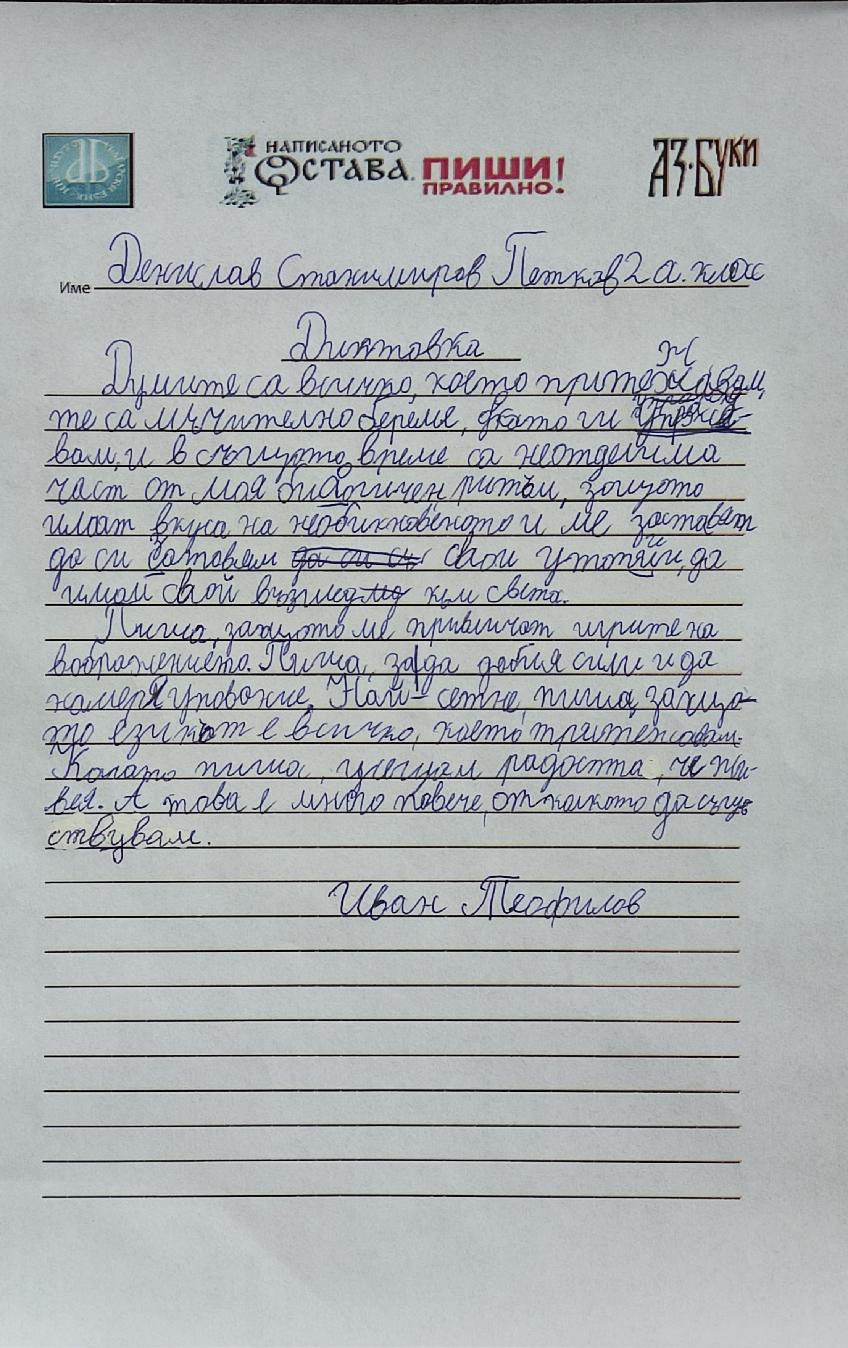 НАПИСАНОТО
ОСТАВА. ПИШИ
ПРАВИЛНО!
АЗ·БУКИ
Име Денислав Станимиров Петков 2 а. клас
Диктовка
Думите са всичко, което притежавам,
те са мъчително бреме, докато ги
вам, и в същото време са неотделима
част от моя биологичен ритъм, защото
имат вкуса на необикновеното и ме заставят
да си сътовям свои утопии, да
имам свой възглед към света.
Пиша, защото ме привличат игрите на
вображението. Пиша, за да добия сили и да
намеря уповожие. Най-сетне, пиша, защо-
то езикът е всичко, което притежавам.
Когато пиша, усещам радостта, че жи-
вея. А това е много повече, отколкото да същес
ствувам.
Иван Теофилов